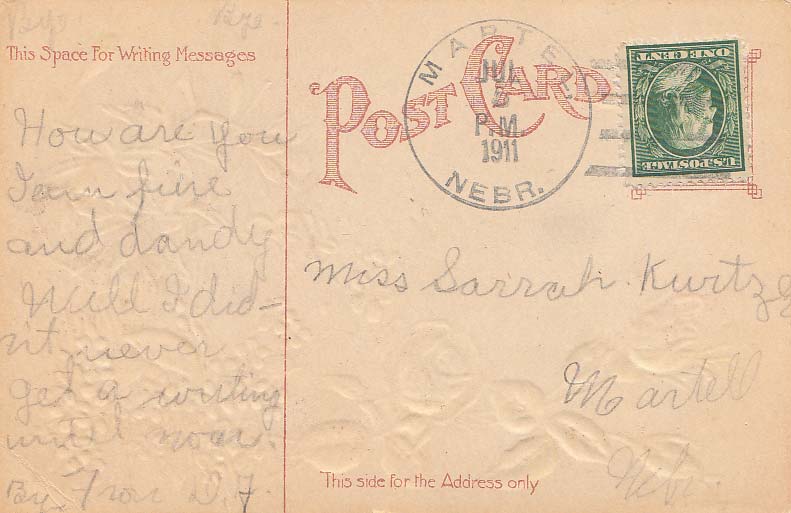 By. Bye.
This Space For Writing Messages
How are you
I am fine
and dandy
Well I did-
nt never
get a writing
until now.
By, From D. F.
POST CARD
MARTELL
JUL
5
P.M.
1911
NEBR.
U.S. POSTAGE
ONE CENT
Miss Sarrah Kurtz
Martell
Nebr.
This side for the Address only